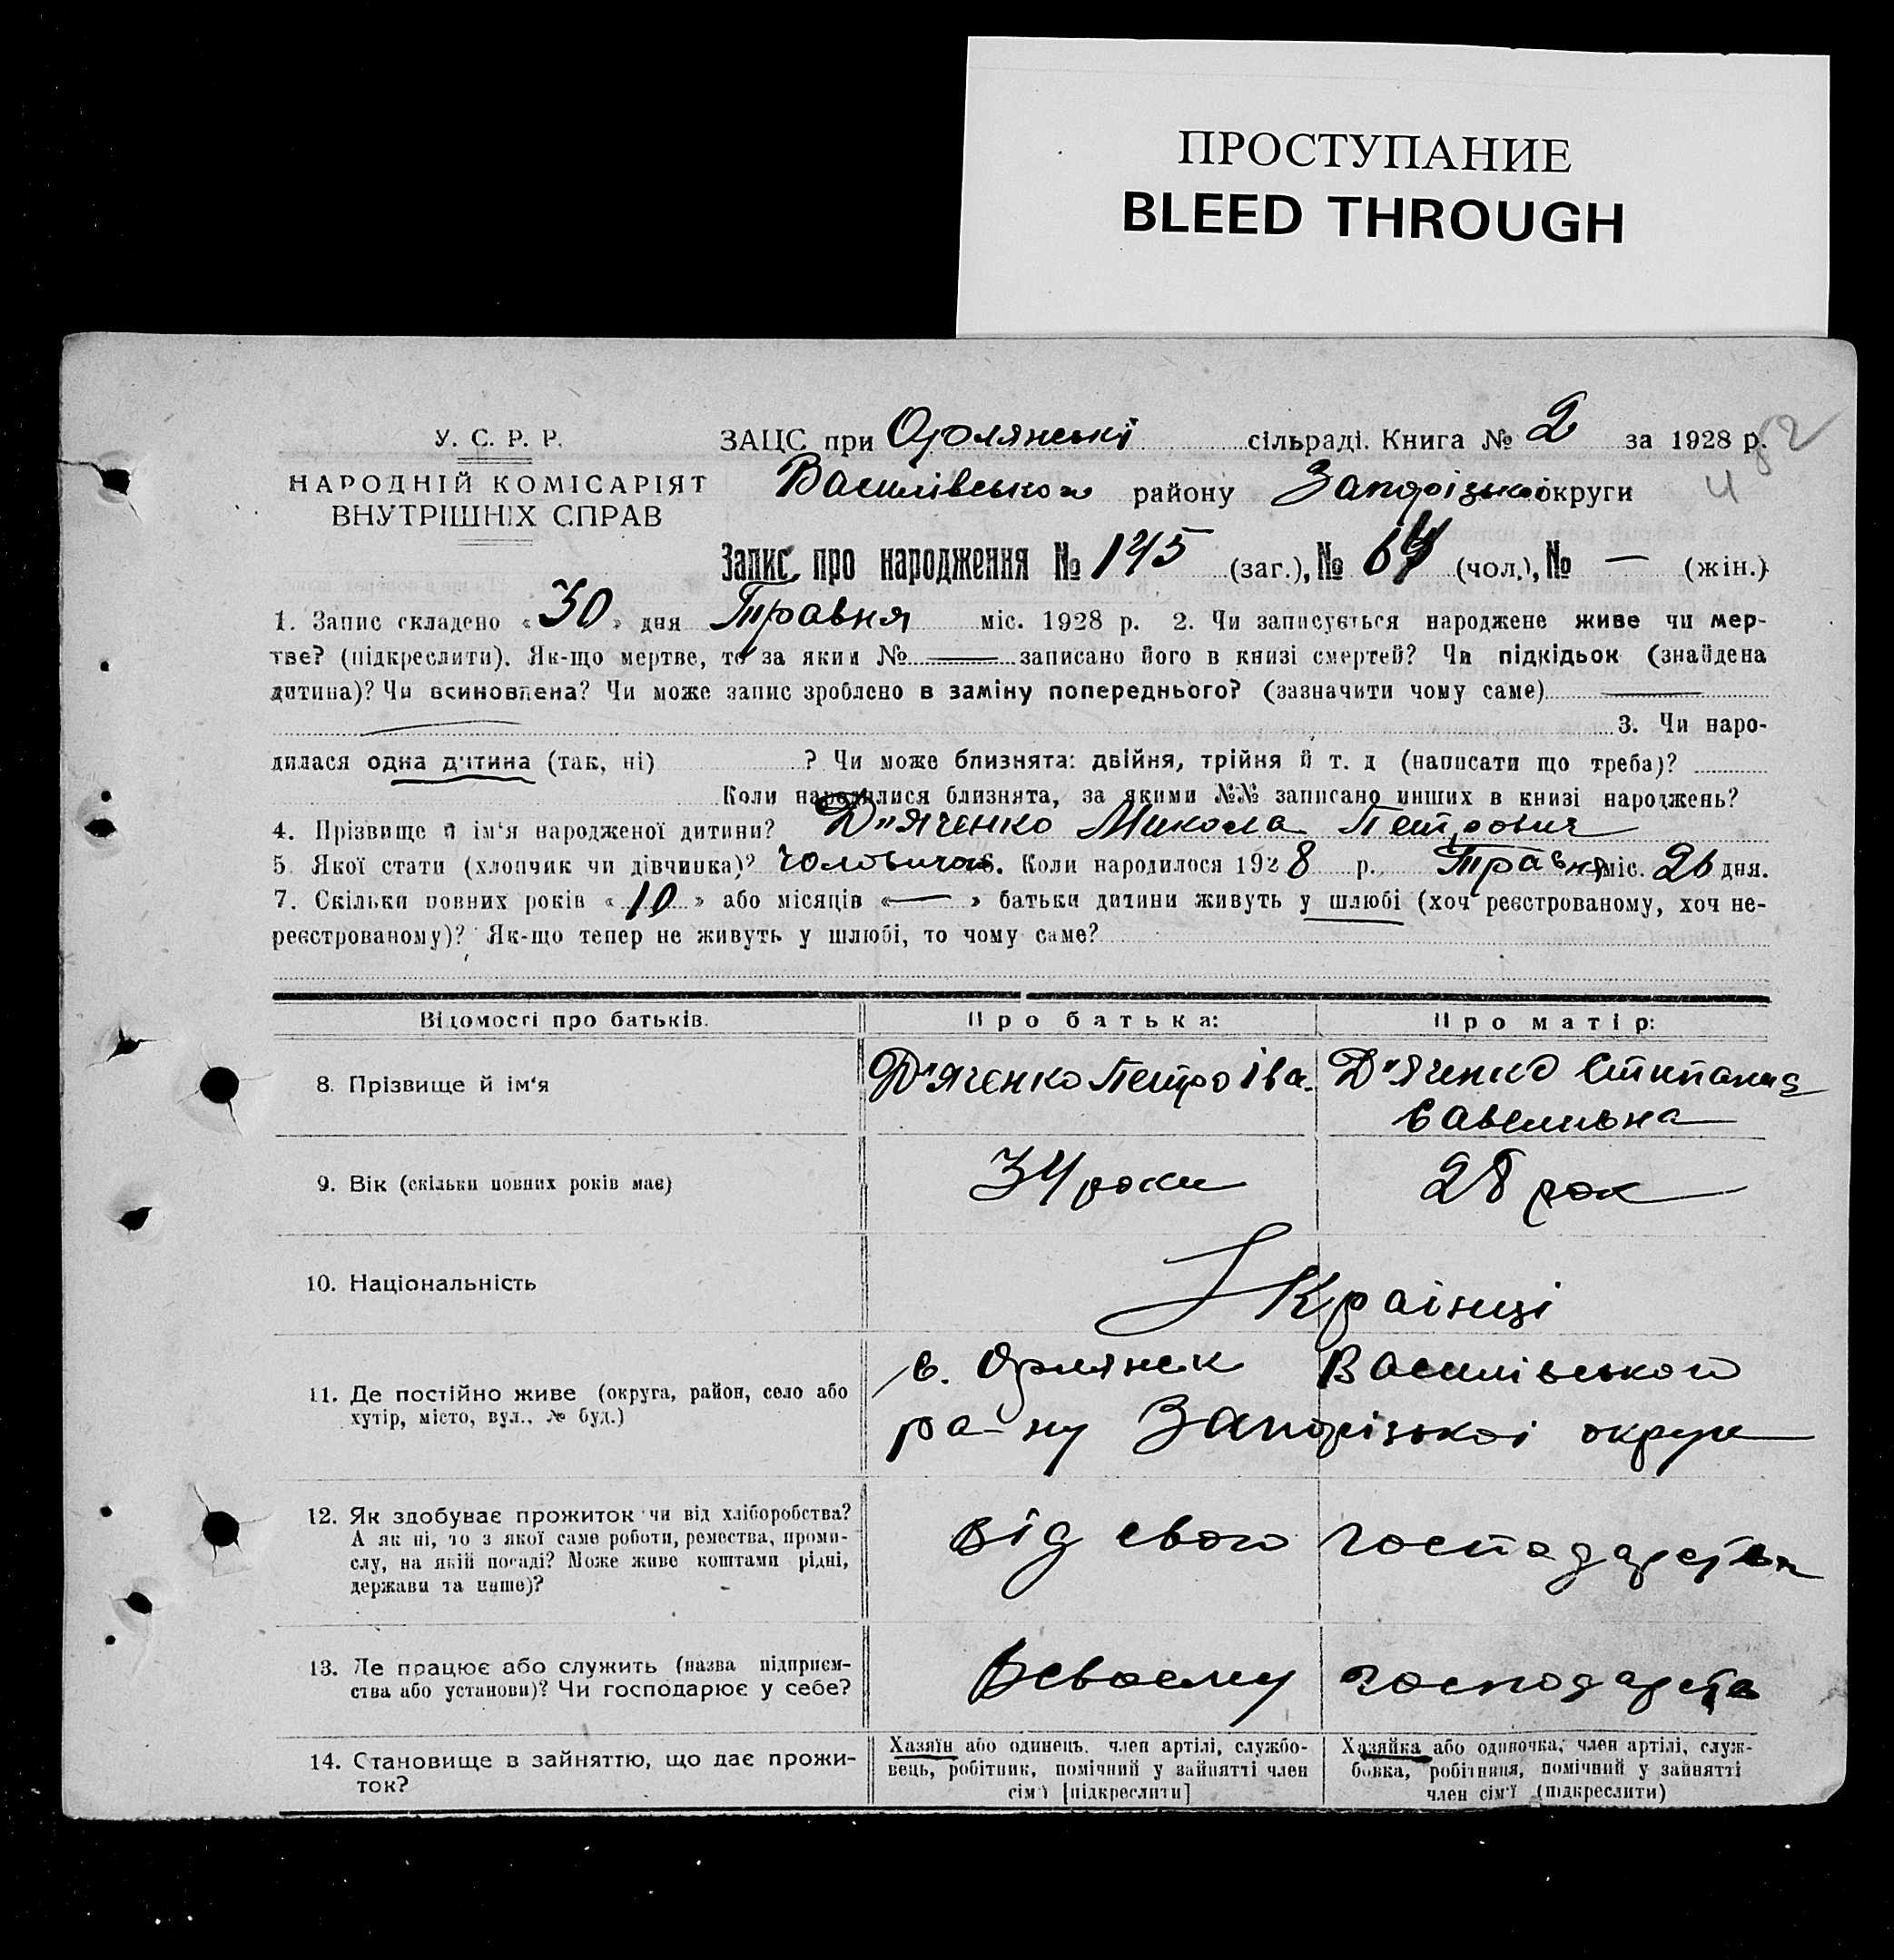 ПРОСТУПАНИЕ
BLEED THROUGH
У. С. Р. Р.
НАРОДНІЙ КОМІСАРІЯТ
ВНУТРІШНІХ СПРАВ
ЗАЦС при Орлянські сільраді. Книга № 2 за 1928 р.
Василівського району Запорізької округи
Запис про народження № 145 (заг.), № 64 (чол.), № — (жін.)
1. Запис складено «30» дня Травня міс. 1928 р. 2. Чи записується народжене живе чи мер-
тве? (підкреслити). Як-що мертве, то за яким № — записано його в книзі смертей? Чи підкідьок (знайдена
дитина)? Чи всиновлена? Чи може запис зроблено в заміну попереднього? (зазначити чому саме) —
3. Чи наро-
дилася одна дитина (так, ні) ? Чи може близнята: двійня, трійня й т. д (написати що треба)?
Коли народилися близнята, за якими №№ записано инших в книзі народжень?
4. Прізвище й ім‘я народженої дитини? Д"яченко Микола Петрович
5 Якої стати (хлопчик чи дівчинка)? чоловичої 6. Коли народилося 1928 р. Травня міс. 26 дня.
7. Скільки повних років «10» або місяців «—» батьки дитини живуть у шлюбі (хоч реєстрованому, хоч не-
реєстрованому)? Як-що тепер не живуть у шлюбі, то чому саме?
Відомості про батьків. Про батька: Про матір:
8. Прізвище й ім‘я Д"яченко Петро Іва. Д"яченко Степанида
Савеливна
9. Вік (скільки повних років має) 34 роки 28 рок
10. Національність Українці
11. Де постійно живе (округа, район, село або
хутір, місто, вул., № буд.)
с. Орлянск Василівського
ра-ну Запорізької округи
12. Як здобуває прожиток чи від хліборобства?
А як ні, то з якої саме роботи, ремества, проми-
слу, на якій посаді? Може живе коштами рідні,
держави та инше)?
від свого господарства
13. Де працює або служить (назва підприєм-
ства або установи)? Чи господарює у себе?
В своєму господарстві
14. Становище в зайняттю, що дає прожи-
ток?
Хазяїн або одинець. член артілі, службо-
вець, робітник, помічний у зайнятті член
сім'ї [підкреслити]
Хазяйка або одиночка, член артілі, служ-
бовка, робітниця, помічний у зайнятті
член сім'ї (підкреслити)